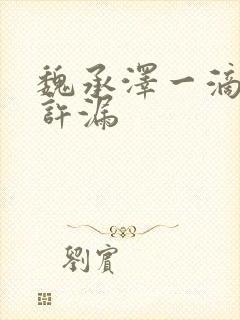 魏承澤一滴
許漏
劉賓